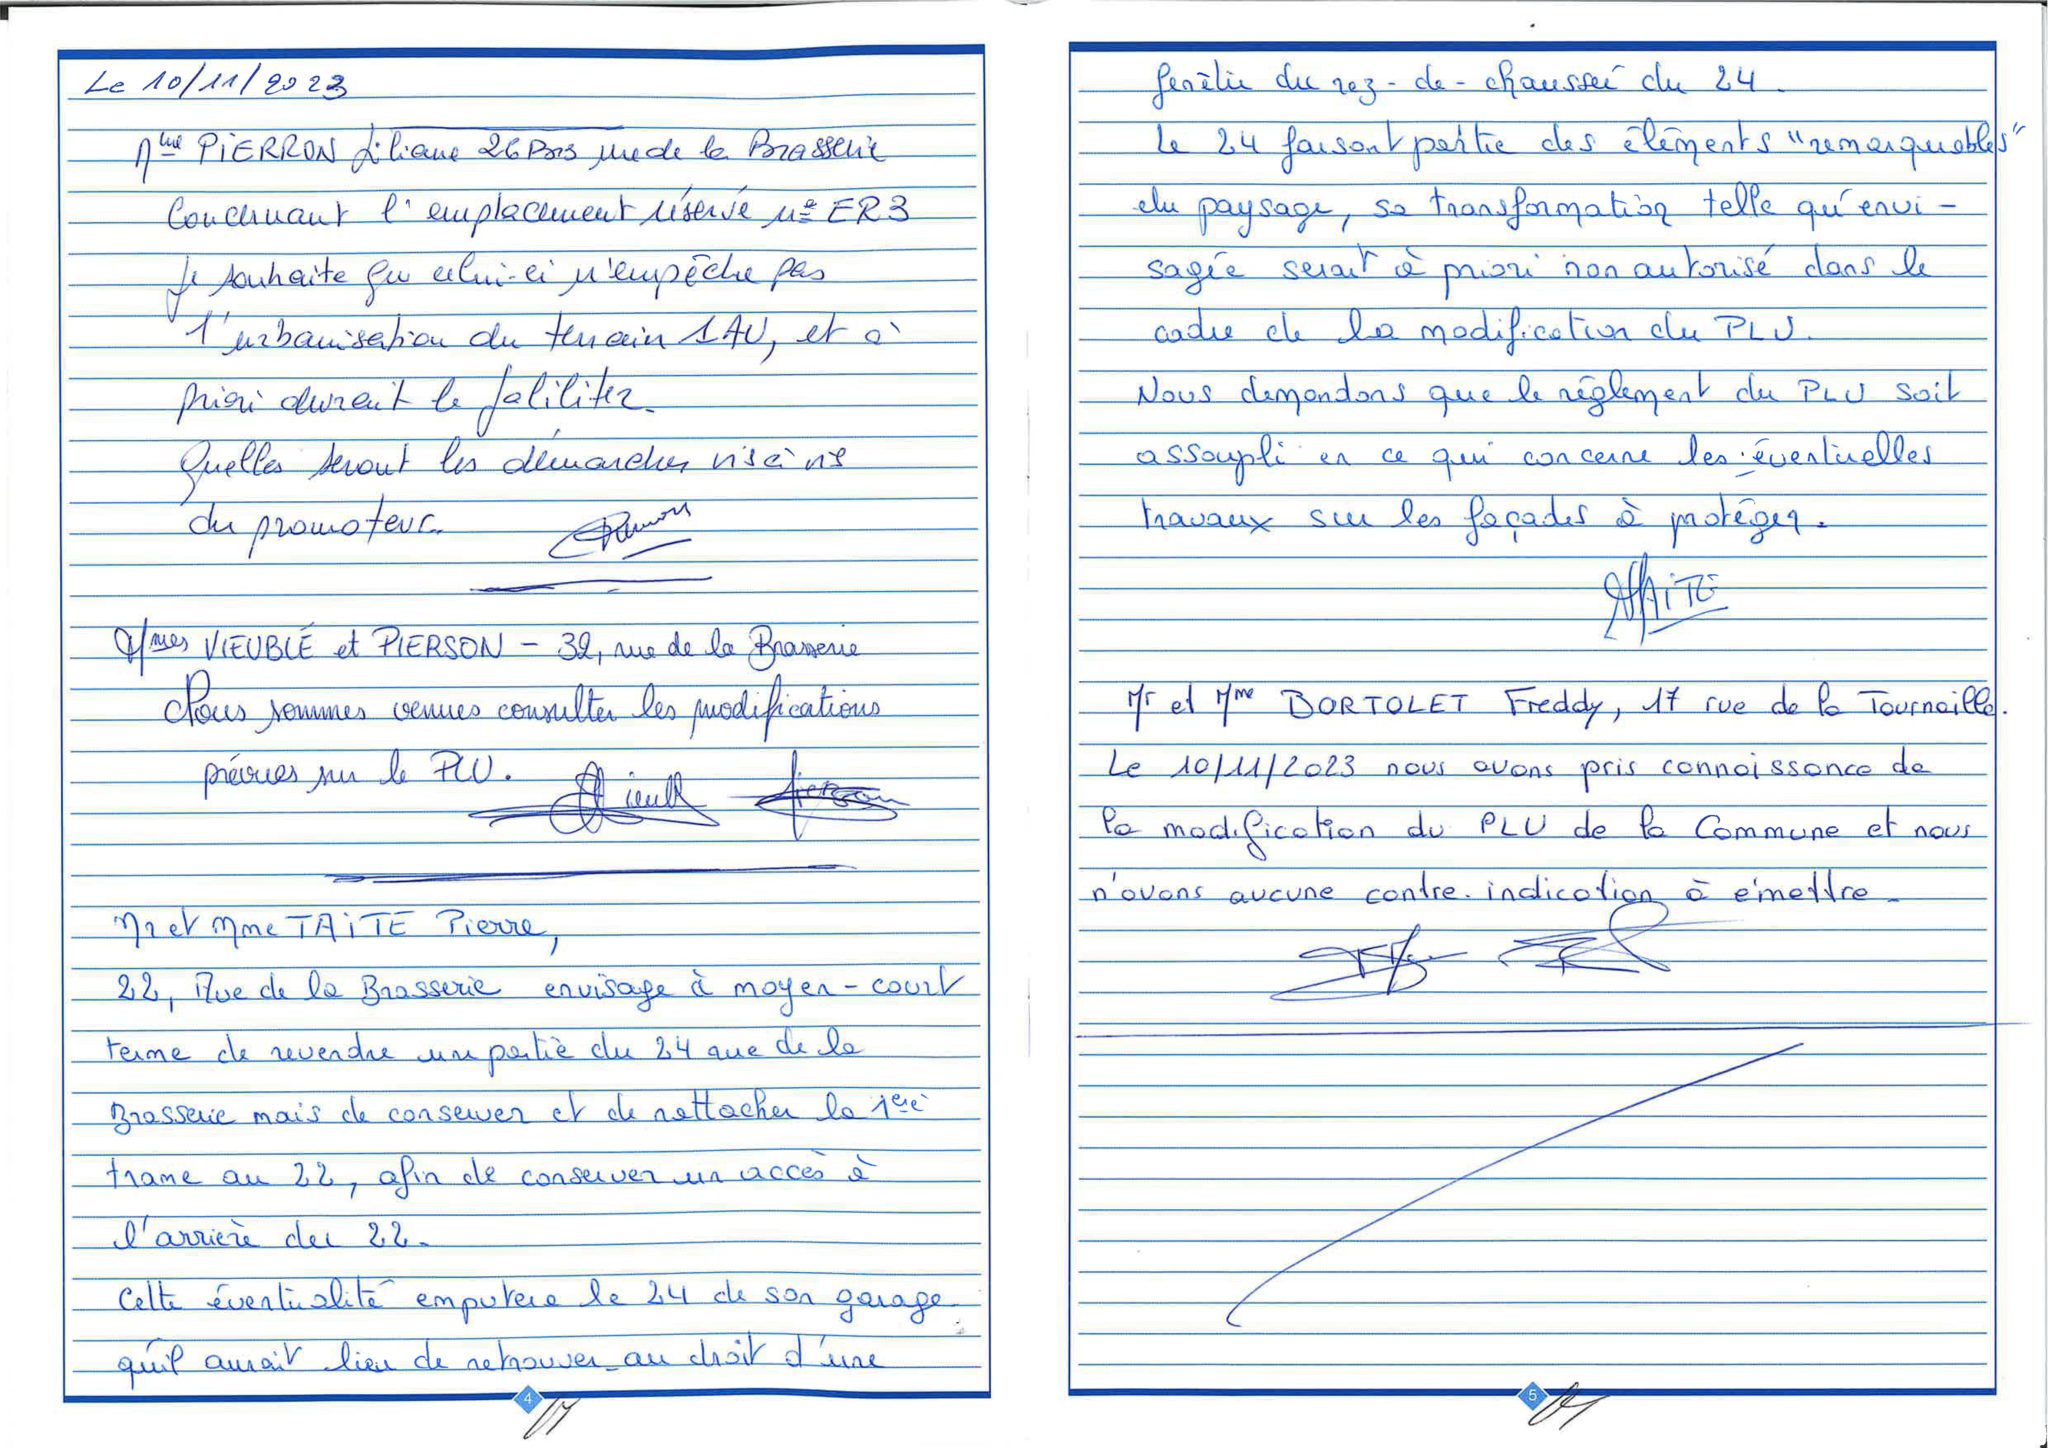 Le 10/11/2023
Mme PIERRON Liliane 26 Bis rue de la Brasserie
Concernant l'emplacement réservé n° ER3
Je souhaite que celui-ci n'empêche pas
l'urbanisation du terrain 1AU, et à
priori devrait le faliliter.
Quelles seront les démarches vis à vis
du promoteur.
Mmes VIEUBLÉ et PIERSON - 32, rue de la Brasserie
Nous sommes venues consulter les modifications
prévues sur le PLU.
Mr et Mme TAITE Pierre,
22, Rue de la Brasserie envisage à moyen-court
terme de revendre un partie du 24 rue de la
Brasserie mais de conserver et de rattacher la 1ère
trame au 22, afin de conserver un accès à
l'arrière du 22.
Cette éventualité emputera le 24 de son garage
qu'il aurait lieu de retrouver au droit d'une
4
fenêtre du rez-de-chaussé du 24.
Le 24 faisant partie des éléments "remarquables"
du paysage, sa transformation telle qu'envi-
sagée serait à priori non autorisé dans le
cadre de la modification du PLU.
Nous demandons que le règlement du PLU soit
assoupli en ce qui concerne les éventuelles
travaux sur les façades à protéger.
TAITE
Mr et Mme BORTOLET Freddy, 17 rue de la Tournaille.
Le 10/11/2023 nous avons pris connaissance de
la modification du PLU de la Commune et nous
n'avons aucune contre-indication à émettre.
5